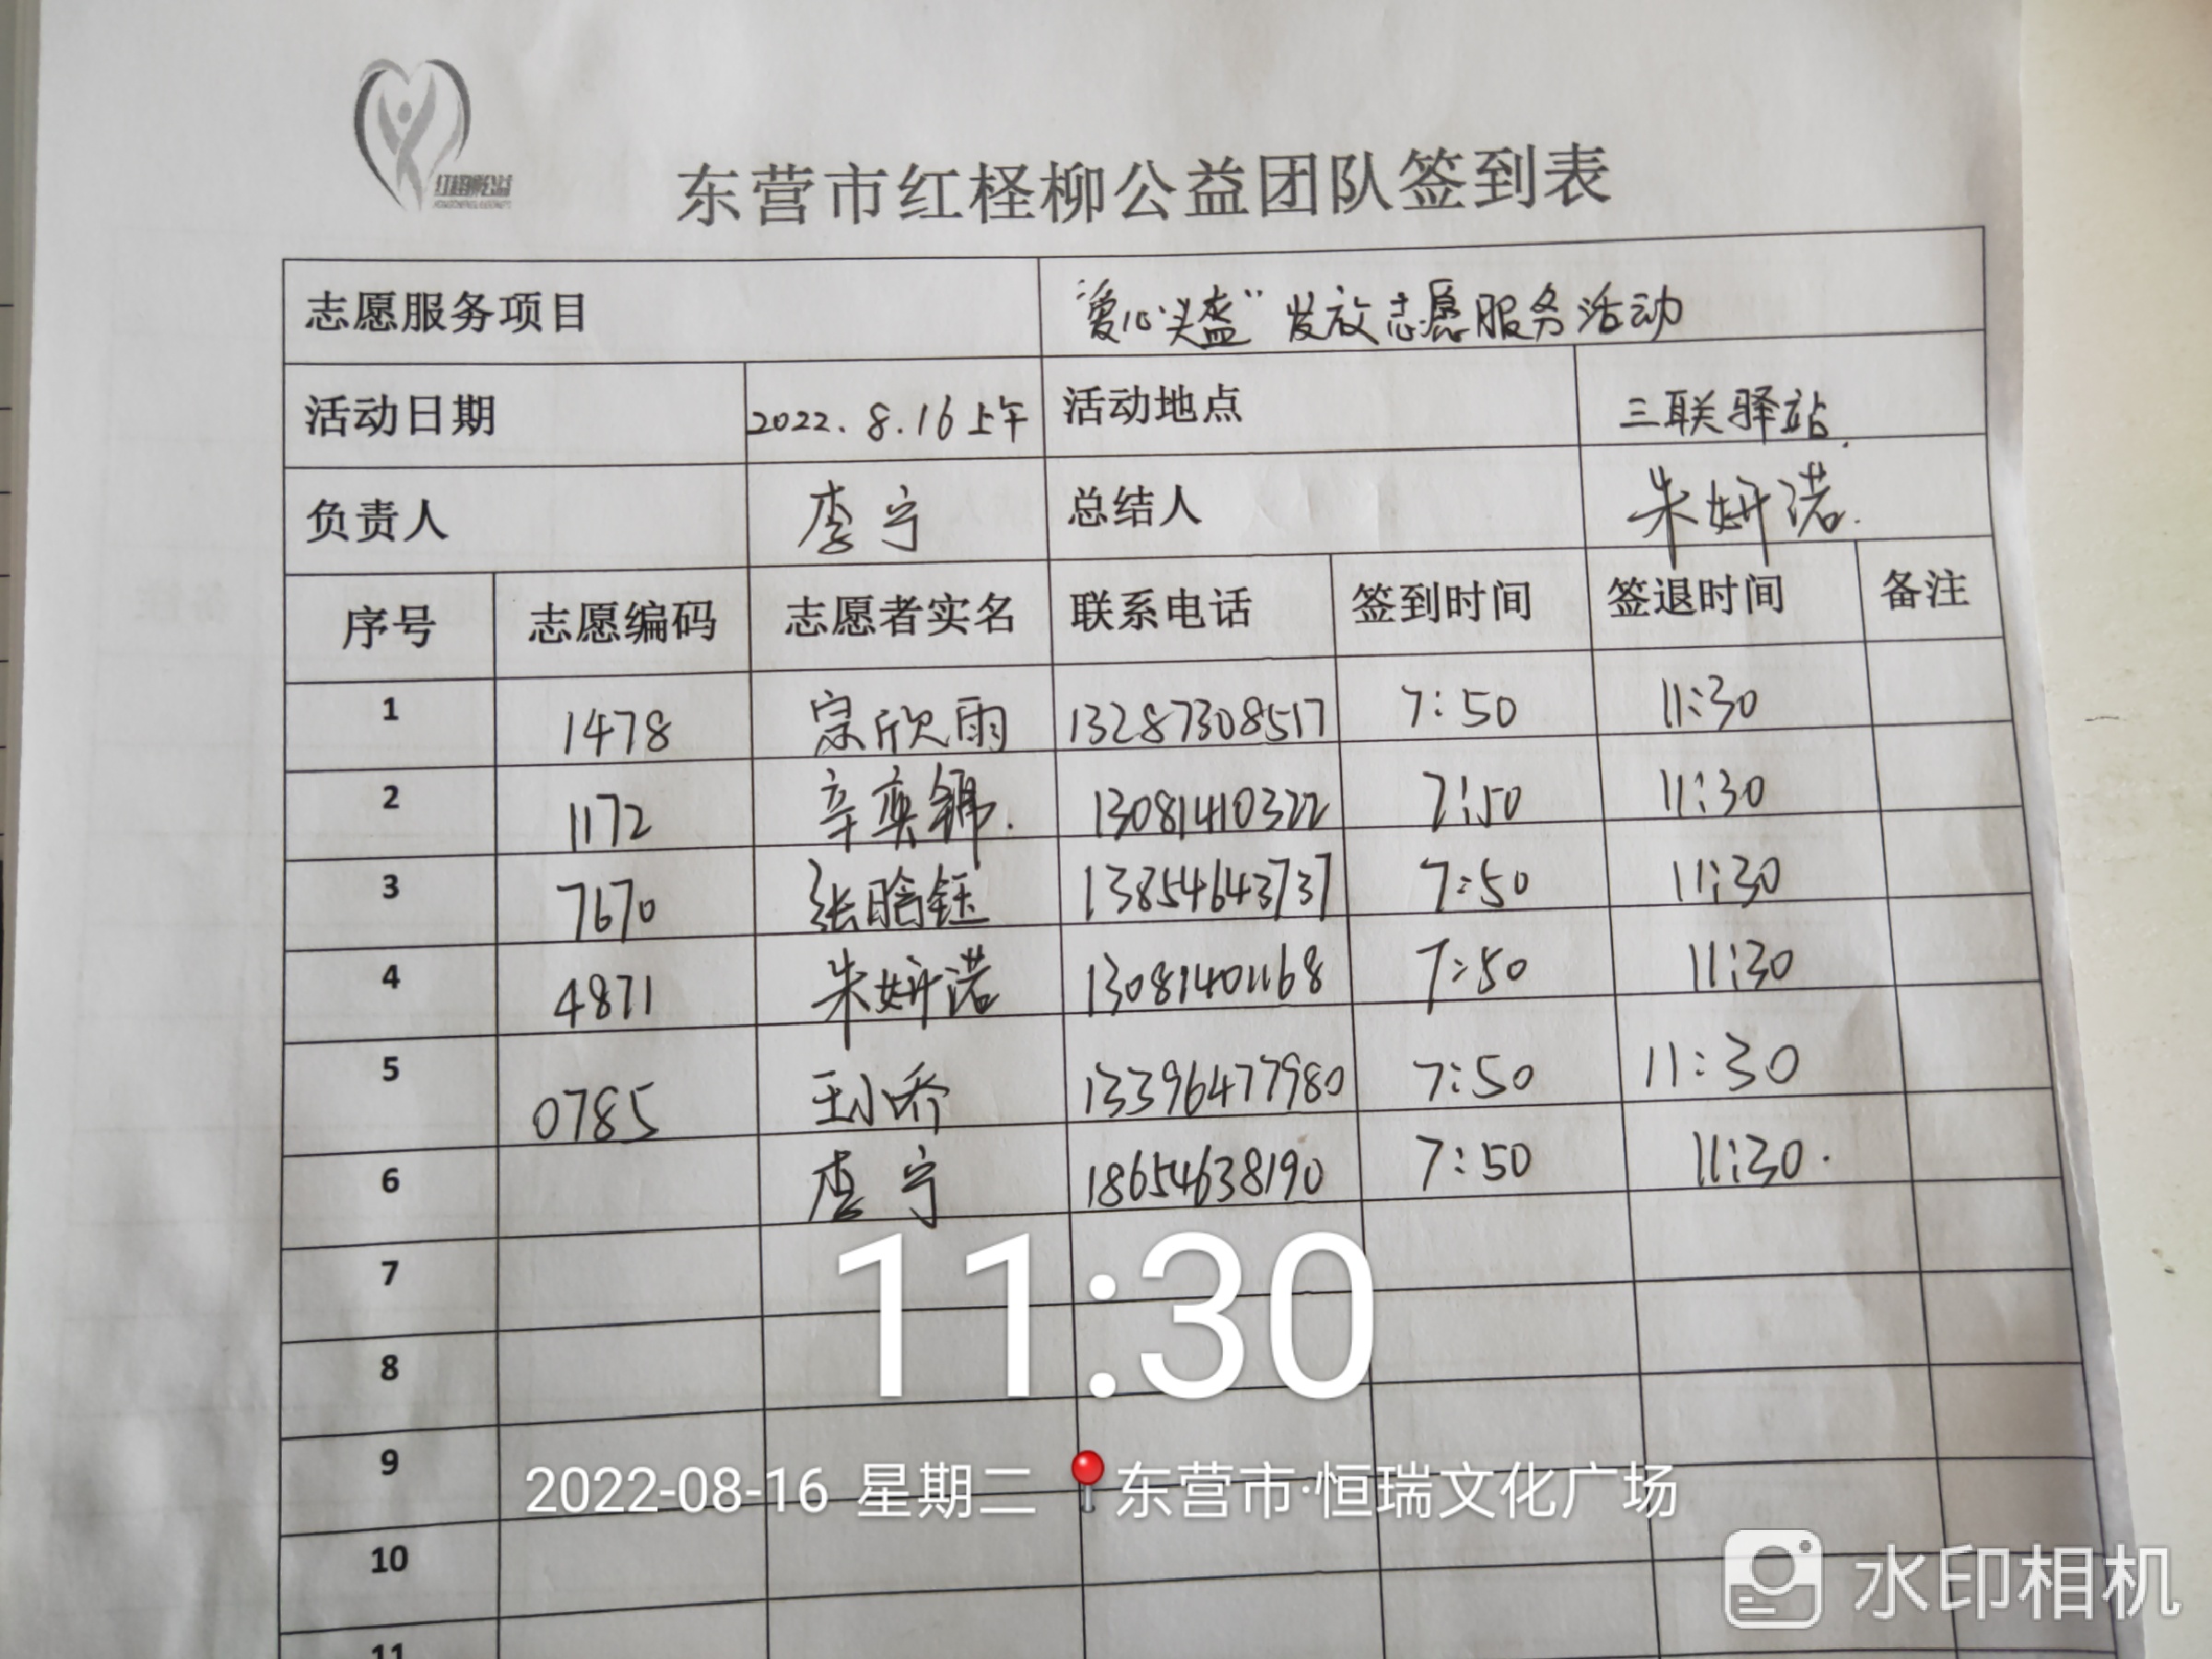 红柽柳公益
东营市红柽柳公益团队签到表
志愿服务项目 “爱心头盔”发放志愿服务活动
活动日期 2022.8.16上午 活动地点 三联驿站.
负责人 李宁 总结人 朱妍诺.
序号 志愿编码 志愿者实名 联系电话 签到时间 签退时间 备注
1 1478 宗欣雨 13287308517 7:50 11:30
2 1172 辛奕锦. 13081410322 7:50 11:30
3 7670 张晗钰 13854643737 7:50 11:30
4 4871 朱妍诺 13081401168 7:50 11:30
5 0785 王小乔 13396477980 7:50 11:30
6 李宁 18654638190 7:50 11:30.
7
11:30
8
9
2022-08-16 星期二 东营市·恒瑞文化广场
10
水印相机
11